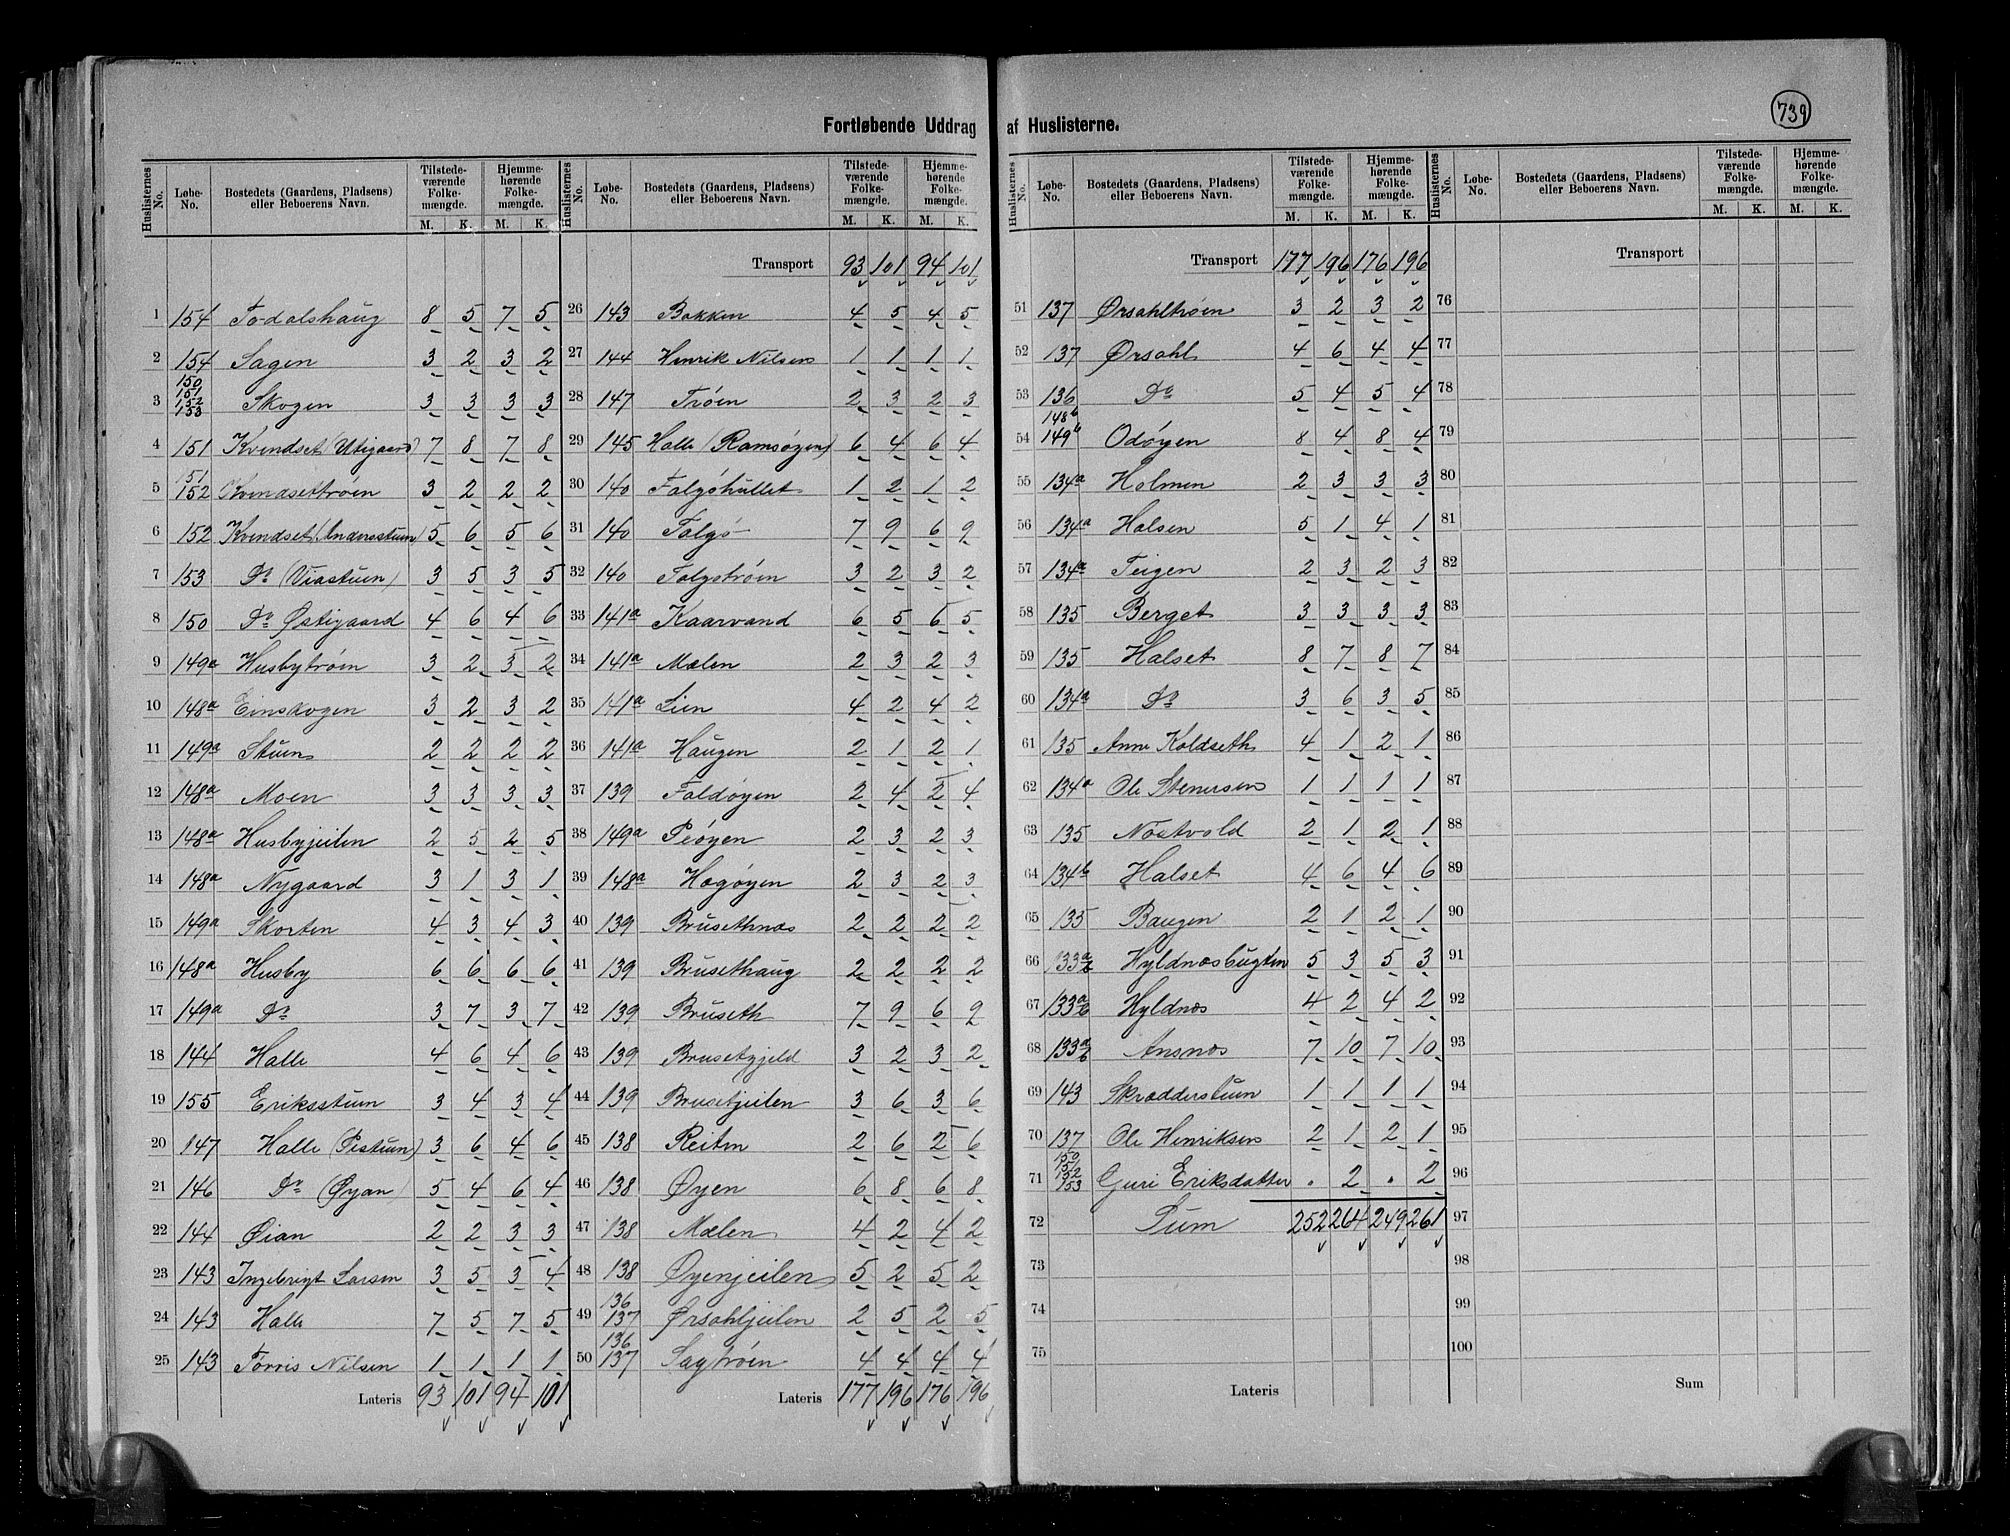 739
Fortløbende Uddrag af Huslisterne.
Huslisternes No. | Løbe-No. | Bostedets (Gaardens, Pladsens) eller Beboerens Navn. | Tilstedeværende Folkemængde. M. K. | Hjemmehørende Folkemængde. M. K.
1 154 Todalshaug 8 5 7 5
2 154 Sagen 3 2 3 2
3 150 151 152 153 Skogen 3 3 3 3
4 151 Kvendset (Utigaard) 7 8 7 8
5 151 152 Kvendsettrøen 3 2 2 2
6 152 Kvendset (Andersstuen) 5 6 5 6
7 153 Do (Viastuen) 3 5 3 5
8 150 Do Østigaard 4 6 4 6
9 149a Husbytrøen 3 2 3 2
10 148a Einskogen 3 2 3 2
11 149a Stuen 2 2 2 2
12 148a Moen 3 3 3 3
13 148a Husbyjeilen 2 5 2 5
14 148a Nygaard 3 1 3 1
15 149a Skorten 4 3 4 3
16 148a Husby 6 6 6 6
17 149a Do 3 7 3 7
18 144 Halle 4 6 4 6
19 155 Eriksstuen 3 4 3 4
20 147 Halle (Pestuen) 3 6 4 6
21 146 Do (Øyan) 5 4 6 4
22 144 Øian 2 2 3 3
23 143 Ingebrigt Larsen 3 5 3 4
24 143 Halle 7 5 7 5
25 143 Torris Nilsen 1 1 1 1
Lateris 93 101 94 101
Huslisternes No. | Løbe-No. | Bostedets (Gaardens, Pladsens) eller Beboerens Navn. | Tilstedeværende Folkemængde. M. K. | Hjemmehørende Folkemængde. M. K.
Transport 93 101 94 101
26 143 Bakken 4 5 4 5
27 144 Henrik Nilsen 1 1 1 1
28 147 Trøen 2 3 2 3
29 145 Halle (Ramsøyen) 6 4 6 4
30 140 Talgøhullet 1 2 1 2
31 140 Talgø 7 9 6 9
32 140 Talgøtrøen 3 2 3 2
33 141a Kaarvand 6 5 6 5
34 141a Mælen 2 3 2 3
35 141a Lien 4 2 4 2
36 141a Haugen 2 1 2 1
37 139 Foldøyen 2 4 2 4
38 149a Peøyen 2 3 2 3
39 148a Hogøyen 2 3 2 3
40 139 Brusethnæs 2 2 2 2
41 139 Brusethaug 2 2 2 2
42 139 Bruseth 7 9 6 9
43 139 Brusetgjeld 3 2 3 2
44 139 Brusetjeilen 3 6 3 6
45 138 Reiten 2 6 2 6
46 138 Øyen 6 8 6 8
47 138 Mælen 4 2 4 2
48 138 Øyenjeilen 5 2 5 2
49 136 137 Ørsahljeilen 2 5 2 5
50 136 137 Sagtrøen 4 4 4 4
Lateris 177 196 176 196
Huslisternes No. | Løbe-No. | Bostedets (Gaardens, Pladsens) eller Beboerens Navn. | Tilstedeværende Folkemængde. M. K. | Hjemmehørende Folkemængde. M. K.
Transport 177 196 176 196
51 137 Ørsahltrøen 3 2 3 2
52 137 Ørsahl 4 6 4 4
53 136 Do 5 4 5 4
54 148b 149b Odøyen 8 4 8 4
55 134a Holmen 2 3 3 3
56 134a Halsen 5 1 4 1
57 134a Teigen 2 3 2 3
58 135 Berget 3 3 3 3
59 135 Halset 8 7 8 7
60 134a Do 3 6 3 5
61 135 Anne Koldseth 4 1 2 1
62 134a Ole Stenersen 1 1 1 1
63 135 Nostvold 2 1 2 1
64 134b Halset 4 6 4 6
65 135 Baugen 2 1 2 1
66 133a b Hyldnæsbugten 5 3 5 3
67 133a b Hyldnæs 4 2 4 2
68 133a b Ansnæs 7 10 7 10
69 143 Skrædderstuen 1 1 1 1
70 137 Ole Henriksen 2 1 2 1
71 150 151 152 153 Guri Eriksdatter . 2 . 2
72 Sum 252 264 249 261
73
74
75
Lateris
Huslisternes No. | Løbe-No. | Bostedets (Gaardens, Pladsens) eller Beboerens Navn. | Tilstedeværende Folkemængde. M. K. | Hjemmehørende Folkemængde. M. K.
Transport
76
77
78
79
80
81
82
83
84
85
86
87
88
89
90
91
92
93
94
95
96
97
98
99
100
Sum